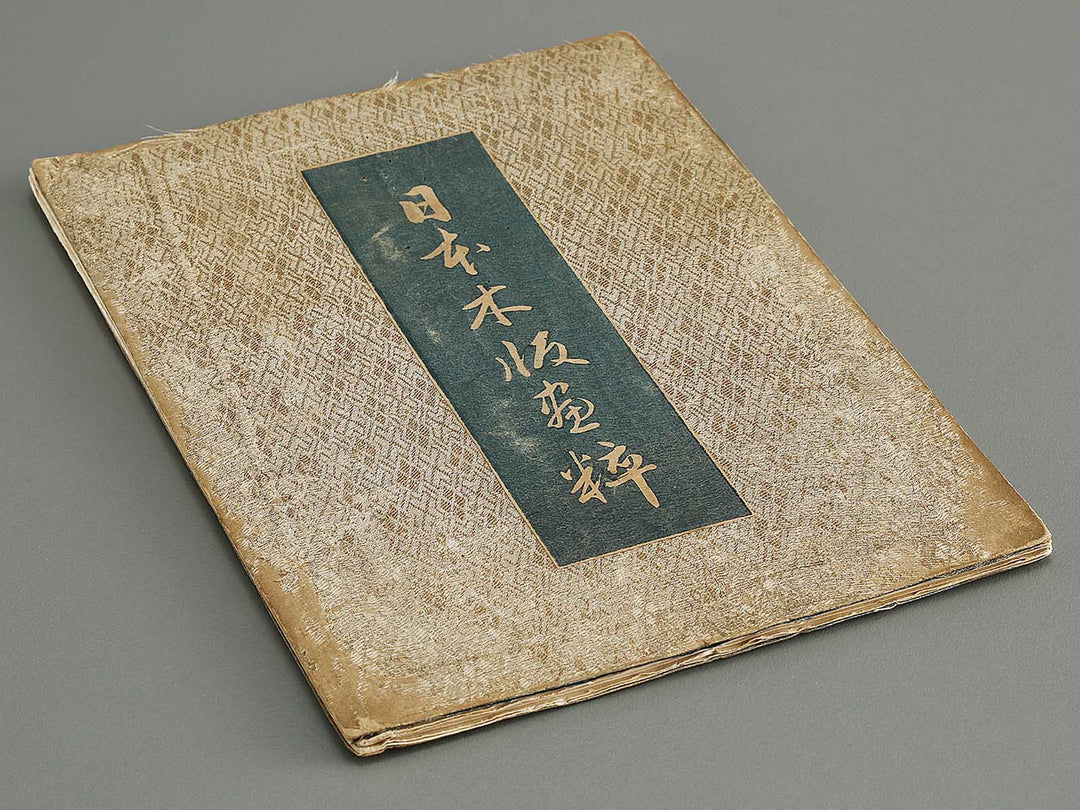 日本木版画粹